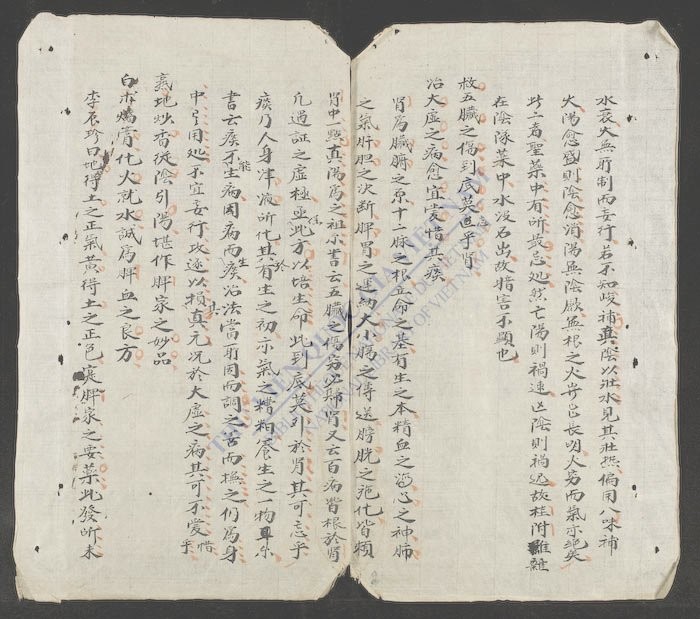 水衰火無所制而妄行若不知峻補真陰以壯水見其壯熱偏用八味補
火陽愈盛則陰愈消陽無陰歛無根之火豈長明火易而氣亦絕矣
此二者聖藥中有所最忌処然亡陽則禍速亡陰則禍迟故桂附雖雜
在陰隊藥中水没名出故暗害不顯也
救五臟之傷到底莫過乎腎
治大虛之病愈宜愛惜其痰
腎為臟腑之原十二脉之根立命之基有生之本精血之心之神肺
之氣肝胆之決断脾胃之運納大小腸之傳送膀胱之施化皆賴
腎中一點真陽為之祖宗書云五臟之傷窮必歸腎又云百病皆根於腎
凡過証之虛極並此方以培生命此到底莫外於腎其可忘乎
痰乃人身津液所化其於有生之初亦氣之糟粕養生之一物耳
書云痰不能生病因病而生痰治法當前因而調之苦而撫之仍為身
中引用処不宜妄行攻逐以損其真元况於大虛之病其可不愛惜乎
熟地炒香從陰引陽堪作脾家之妙品
白朮焬膏化火就水誠為脾血之良方
李辰珍曰地得土之正氣黄得土之正色寔脾家之要藥此發所未